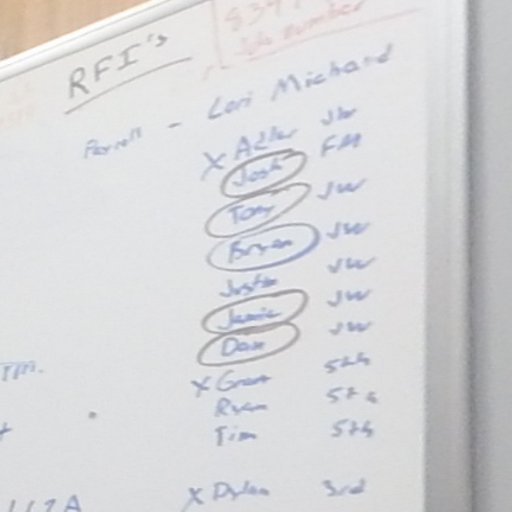 RFI's
Job number
Payroll - Lori Michard
X Adler JW
Josh FM
Tony JW
Bryan JW
Justin JW
Jamie JW
Dan JW
X Grant 5th
Ryan 5th
Tim 5th
X Dylan 3rd